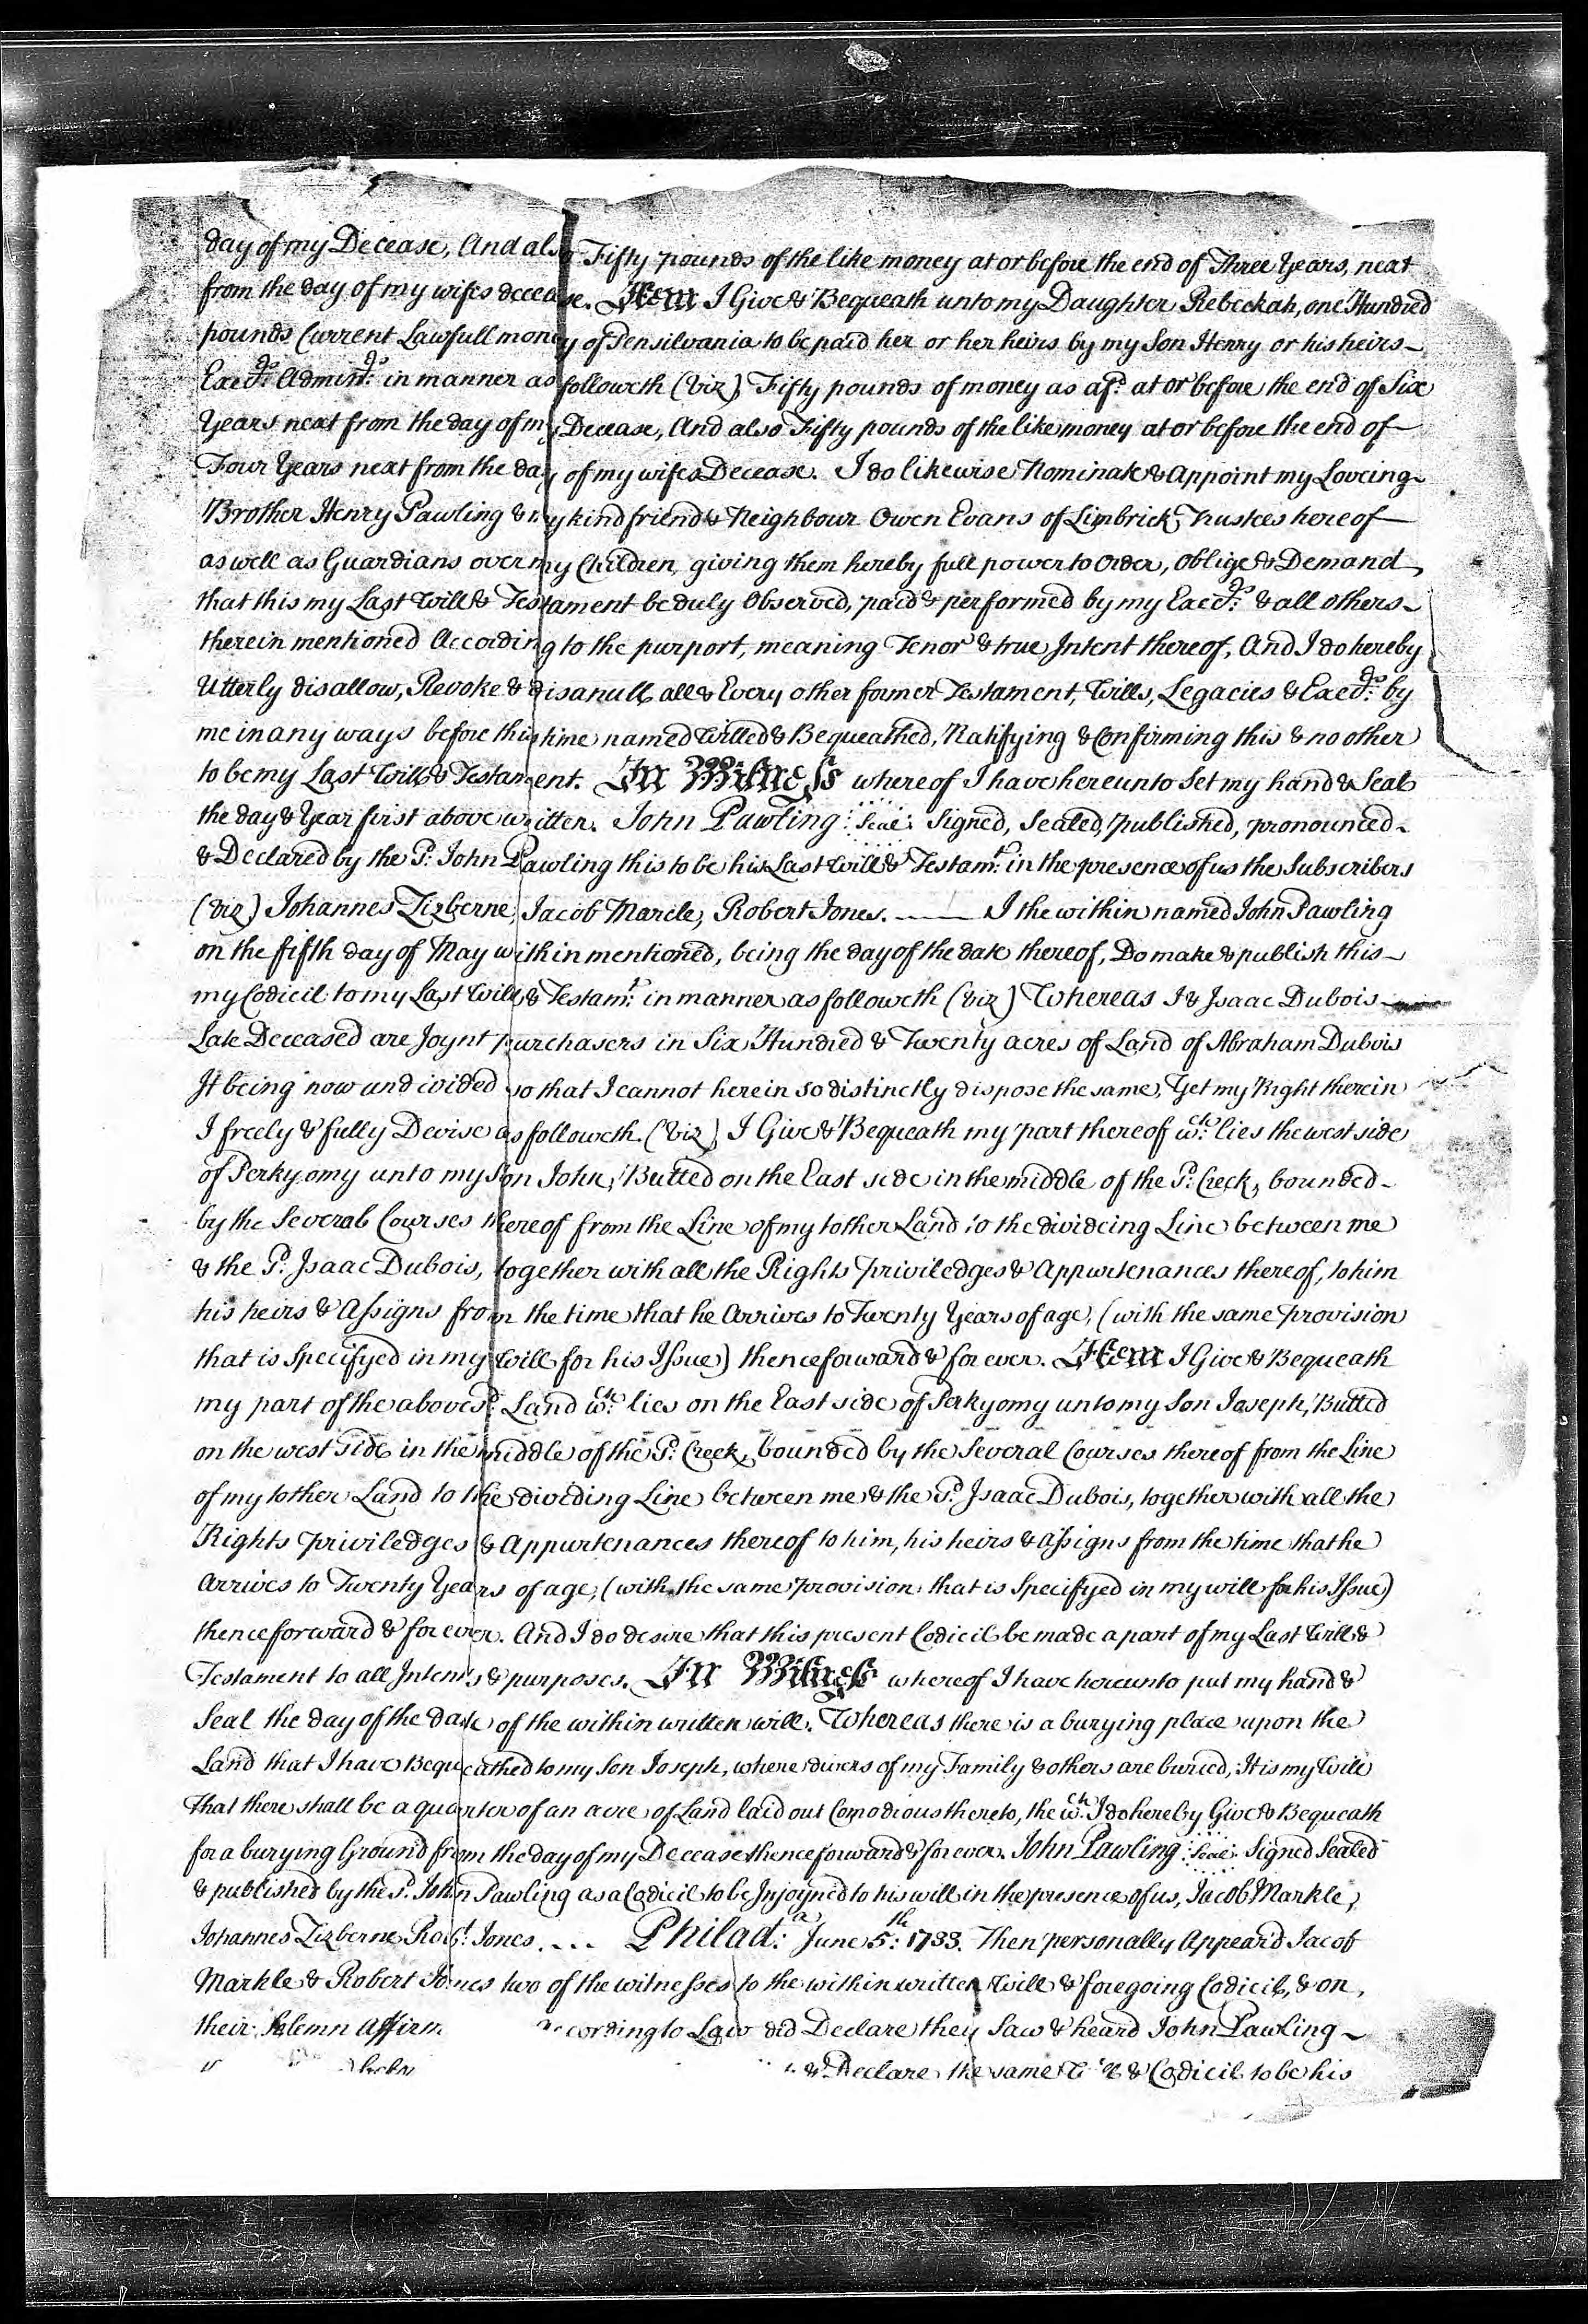 day of my Decease, And also Fifty pounds of the like money at or before the end of Three Years, next
from the day of my wifes decease. Item I Give & Bequeath unto my Daughter Rebeckah, one Hundred
pounds Current Lawfull money of Pensilvania to be paid her or her heirs by my Son Henry or his heirs
Execrs. Adminrs. in manner as followeth (viz) Fifty pounds of money as afd. at or before the end of Six
Years next from the day of my Decease, And also Fifty pounds of the like money at or before the end of
Four Years next from the day of my wifes Decease. I do likewise Nominate & Appoint my Loveing
Brother Henry Pawling & my kind friend & Neighbour Owen Evans of Limbrick, Trustees hereof
as well as Guardians over my Children, giving them hereby full power to Order, Oblige & Demand,
that this my Last Will & Testament be duly Observed, paid & performed by my Execrs. & all others
therein mentioned According to the purport, meaning Tenor & true Intent thereof, And I do hereby
Utterly disallow, Revoke & disanull all & Every other former Testament, Wills, Legacies & Execrs. by
me in any ways before this time named Willed & Bequeathed, Ratifying & Confirming this & no other
to be my Last Will & Testament. In Witness whereof I have hereunto Set my hand & Seal
the day & Year first above written. John Pawling Seal Signed, Sealed, published, pronounced
& Declared by the Sd. John Pawling this to be his Last Will & Testamt. in the presence of us the Subscribers
(viz) Johannes Zizberne, Jacob Marcle, Robert Jones. —— I the within named John Pawling
on the fifth day of May within mentioned, being the day of the date thereof, Do make & publish this
my Codicil to my Last Will & Testamt. in manner as followeth (viz) Whereas I & Isaac Dubois
Late Deceased are Joynt purchasers in Six Hundred & Twenty acres of Land of Abraham Dubois
It being now undivided so that I cannot herein so distinctly dispose the same, Yet my Right therein
I freely & fully Devise as followeth. (viz) I Give & Bequeath my part thereof wch. lies the west side
of Perkyomy unto my Son John, Butted on the East side in the middle of the Sd. Creek, bounded
by the Several Courses thereof from the Line of my tother Land to the divideing Line between me
& the Sd. Isaac Dubois, together with all the Rights priviledges & Appurtenances thereof, to him
his heirs & Assigns from the time that he Arrives to Twenty Years of age, (with the same provision
that is Specifyed in my Will for his Issue) thenceforward & for ever. Item I Give & Bequeath
my part of the above sd. Land wch. lies on the East side of Perkyomy unto my Son Joseph, Butted
on the west side in the middle of the Sd. Creek, bounded by the Several Courses thereof from the Line
of my tother Land to the dividing Line between me & the Sd. Isaac Dubois, together with all the
Rights priviledges & Appurtenances thereof to him, his heirs & assigns from the time that he
Arrives to Twenty Years of age, (with the same provision that is Specifyed in my will for his Issue)
thenceforward & for ever. And I do desire that this present Codicil be made a part of my Last Will &
Testament to all Intents & purposes. In Witness whereof I have hereunto put my hand &
Seal the day of the date of the within written will. Whereas there is a burying place upon the
Land that I have Bequeathed to my Son Joseph, where divers of my Family & others are buried, It is my Will
that there shall be a quarter of an acre of Land laid out Comodious thereto, the wch. I do hereby Give & Bequeath
for a burying Ground from the day of my Decease thenceforward & for ever. John Pawling Seal Signed Sealed
& published by the Sd. John Pawling as a Codicil to be Injoyned to his will in the presence of us, Jacob Markle,
Johannes Zizberne, Robt. Jones. --- Philada. June 5th: 1733. Then personally Appear'd Jacob
Markle & Robert Jones two of the witnesses to the within written Will & foregoing Codicil, & on
their Solemn Affirm according to Law did Declare they Saw & heard John Pawling
& Declare the same Will & Codicil to be his